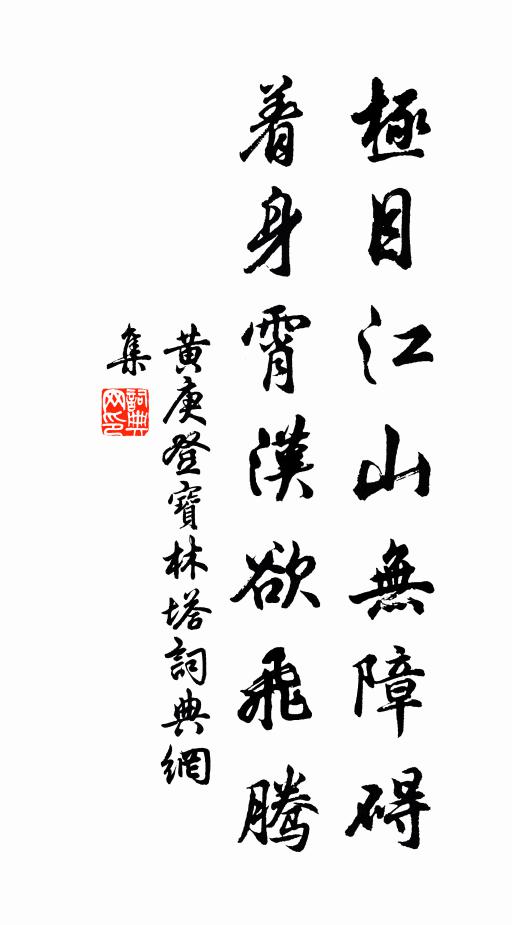 極目江山無障碍
着身霄漢欲飛騰
黄庚登寶林塔詞典網
集
詞典
网印